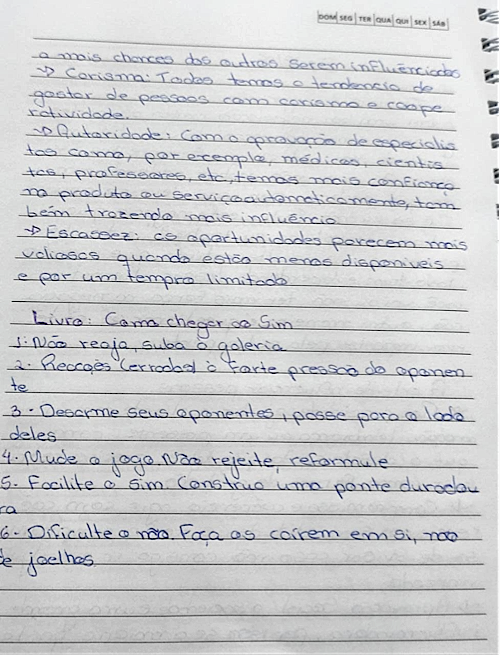 DOM SEG TER QUA QUI SEX SÁB
a mais chances dos outros serem influênciados
-> Carisma: Todos temos a tendencia de
gostar de pessoas com carisma e coope
ratividade.
-> Autoridade: Com a aprovação de especialis
tas como, por exemplo, médicos, cientis
tas, professores, etc, temos mais confiança
no produto ou serviço automaticamente, tam
bém trazendo mais influência
-> Escassez: as oportunidades parecem mais
valiosas quando estão menos disponíveis
e por um tempo limitado
Livro: Como chegar ao Sim
1: Não reaja, suba à galeria
2. Reações (erradas) à forte pressão do oponen
te
3. Desarme seus oponentes, passe para o lado
deles
4. Mude o jogo. Não rejeite, reformule
5. Facilite o sim. Construa uma ponte duradou
ra
6. Dificulte o não. Faça os caírem em si, não
de joelhos